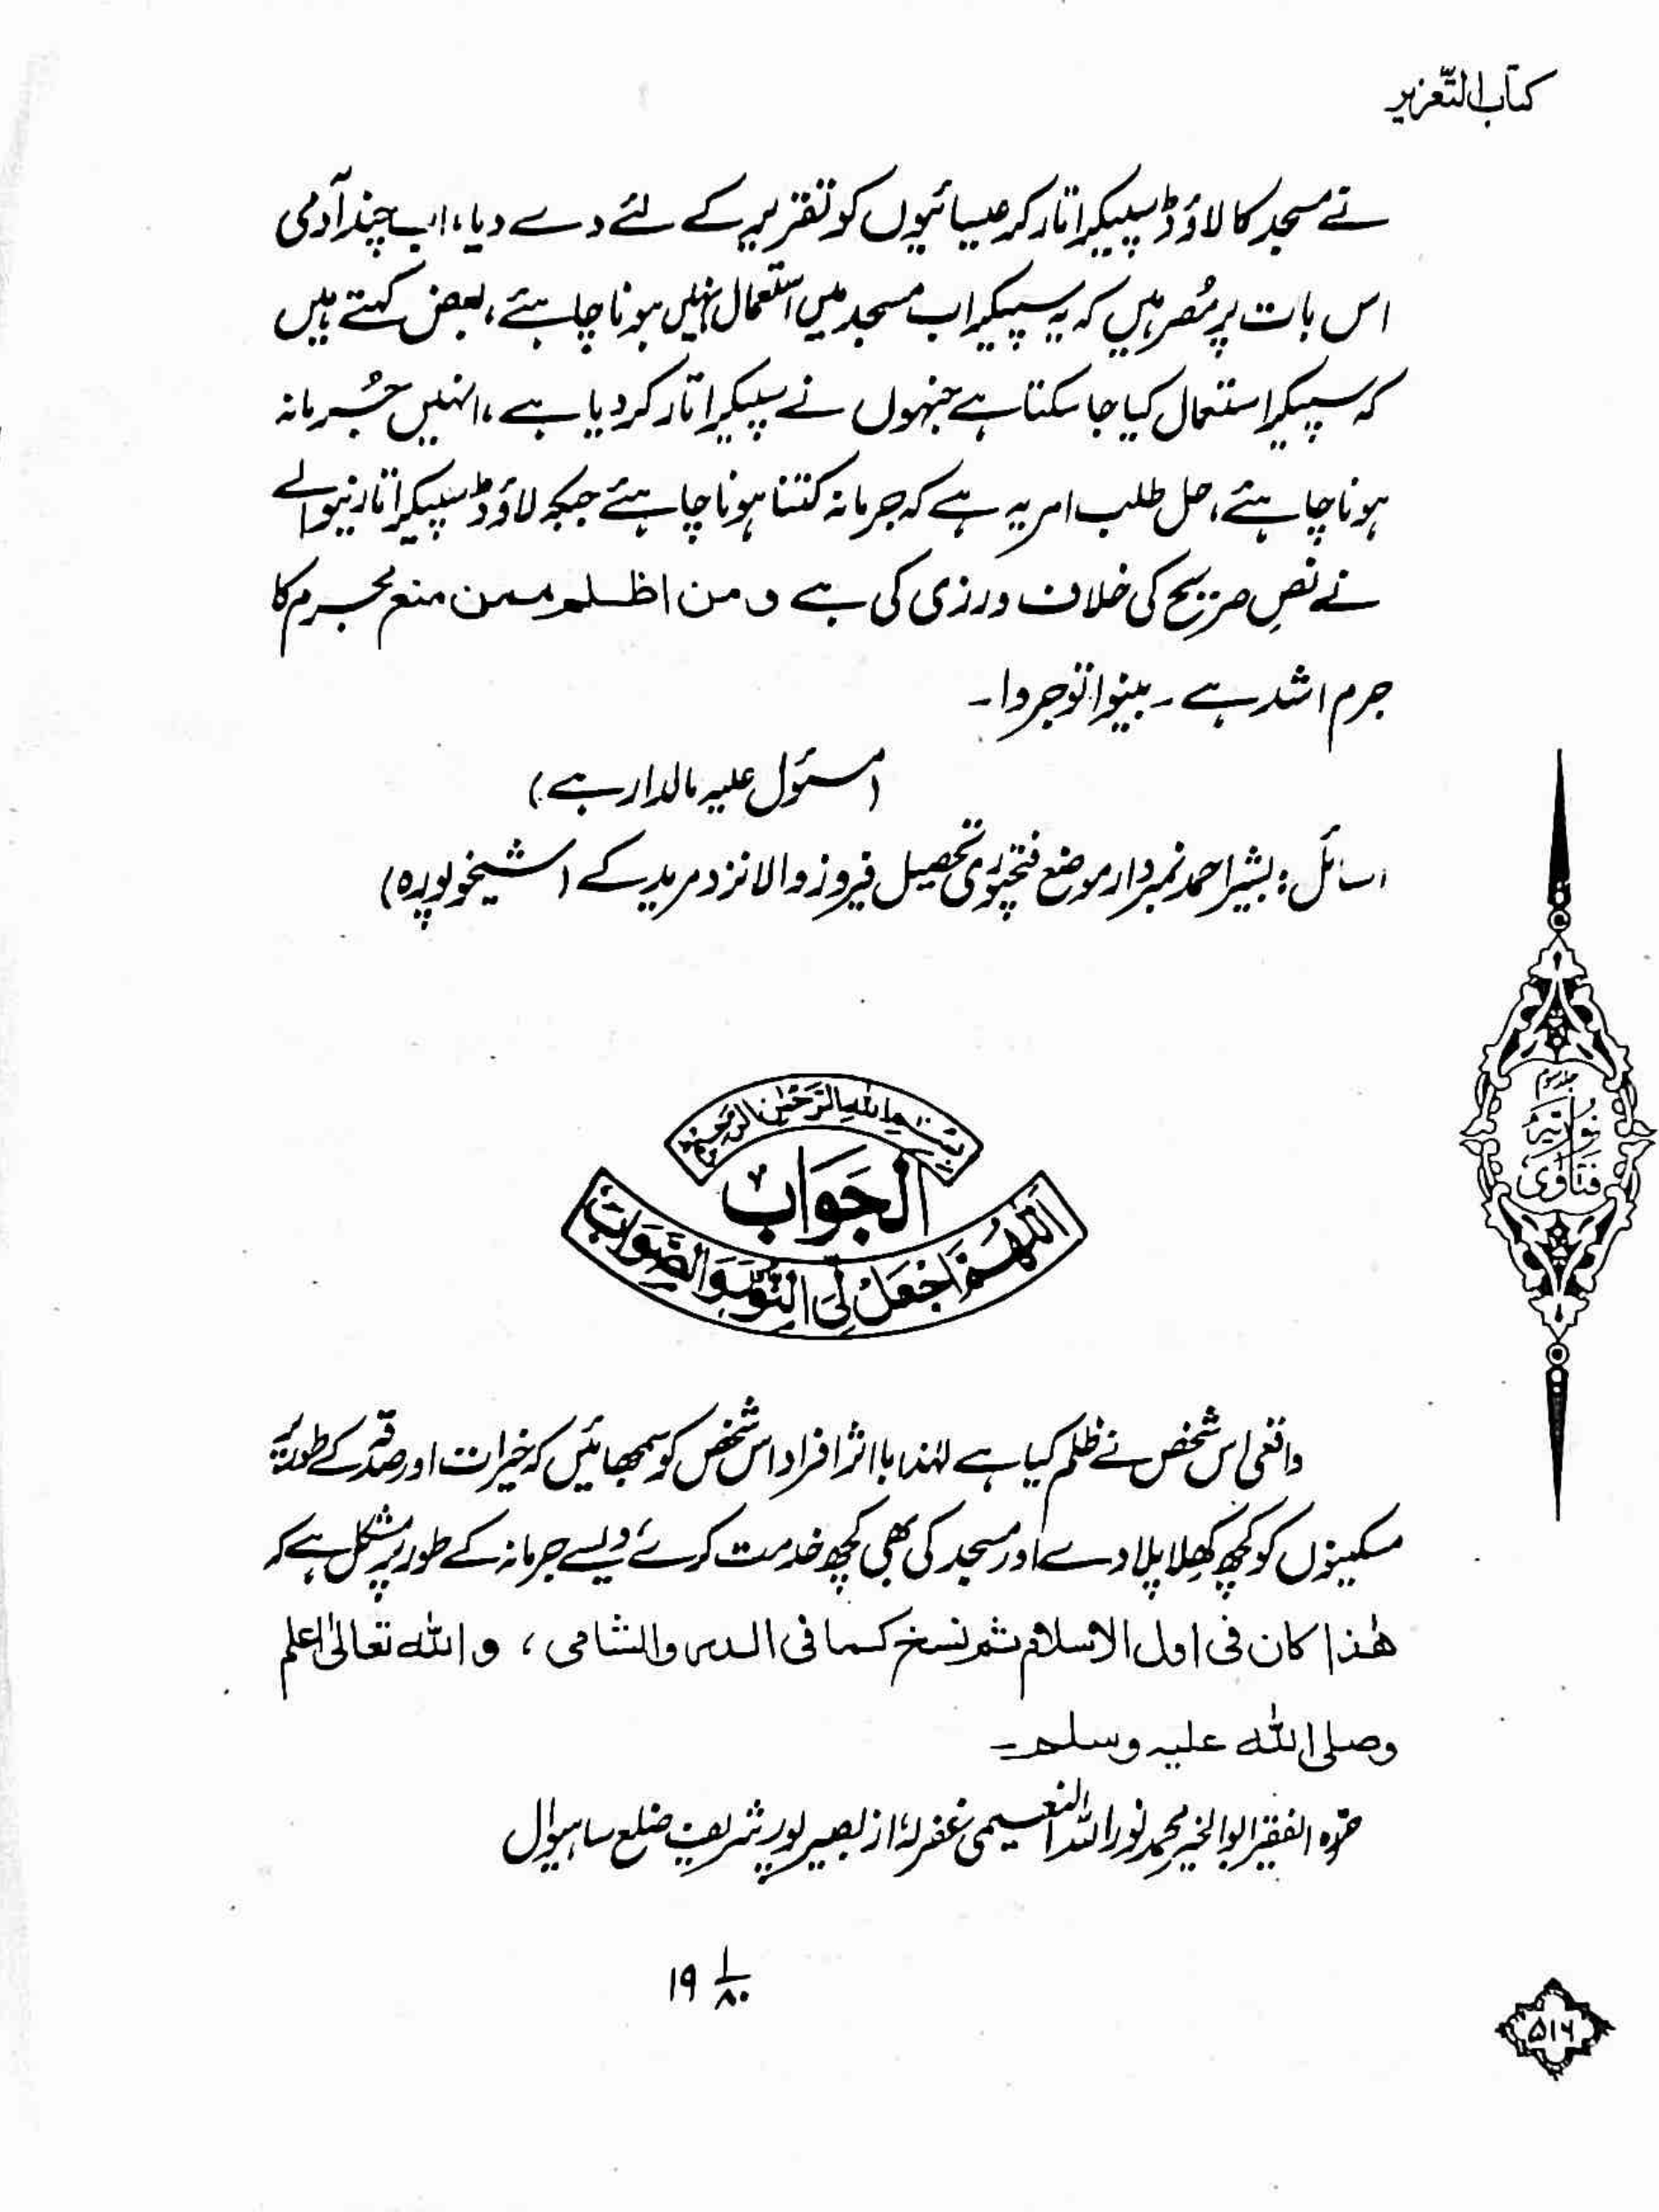 کتاب التّعزیر
نے مسجد کا لاؤڈ سپیکر اتار کر عیسائیوں کو تقریر کے لئے دے دیا، اب چند آدمی
اس بات پر مُصر ہیں کہ یہ سپیکر اب مسجد میں استعمال نہیں ہونا چاہئے، بعض کہتے ہیں
کہ سپیکر استعمال کیا جا سکتا ہے جنہوں نے سپیکر اتار کر دیا ہے، انہیں جُرمانہ
ہونا چاہئے، حل طلب امر یہ ہے کہ جرمانہ کتنا ہونا چاہئے جبکہ لاؤڈ سپیکر اتارنیوالے
نے نصِ صریح کی خلاف ورزی کی ہے و من اظلم ممن منع مجرم کا
جرم اشد ہے ۔ بینوا توجروا ۔
(مسئول علیہ مالدار ہے)
سائل: بشیر احمد نمبردار موضع فتحپوری تحصیل فیروز والا نزد مریدکے (شیخوپورہ)
بسم اللہ الرحمٰن الرحیم
الجَوَاب
اَللّٰهُمَّ اجْعَلْ لِیَ النُّوْرَ وَالصَّوَابَ
واقعی اس شخص نے ظلم کیا ہے لہٰذا بااثر افراد اس شخص کو سمجھائیں کہ خیرات اور صدقہ کے طور پر
مسکینوں کو کچھ کھلا پلا دے اور مسجد کی بھی کچھ خدمت کرے، ویسے جرمانہ کے طور پر مشکل ہے کہ
هٰذا کان فی اول الاسلام ثم نسخ کما فی الدر والشامی ، و اللّٰه تعالیٰ اعلم
وصلی اللّٰه علیہ وسلم ۔
حرّہ الفقیر ابوالخیر محمد نور اللہ النعیمی غفرلہٗ از بصیر پور شریف ضلع ساہیوال
۱۹ ۱/۸۰
جلد سوم
نوریہ
فتاویٰ
۵۱۶